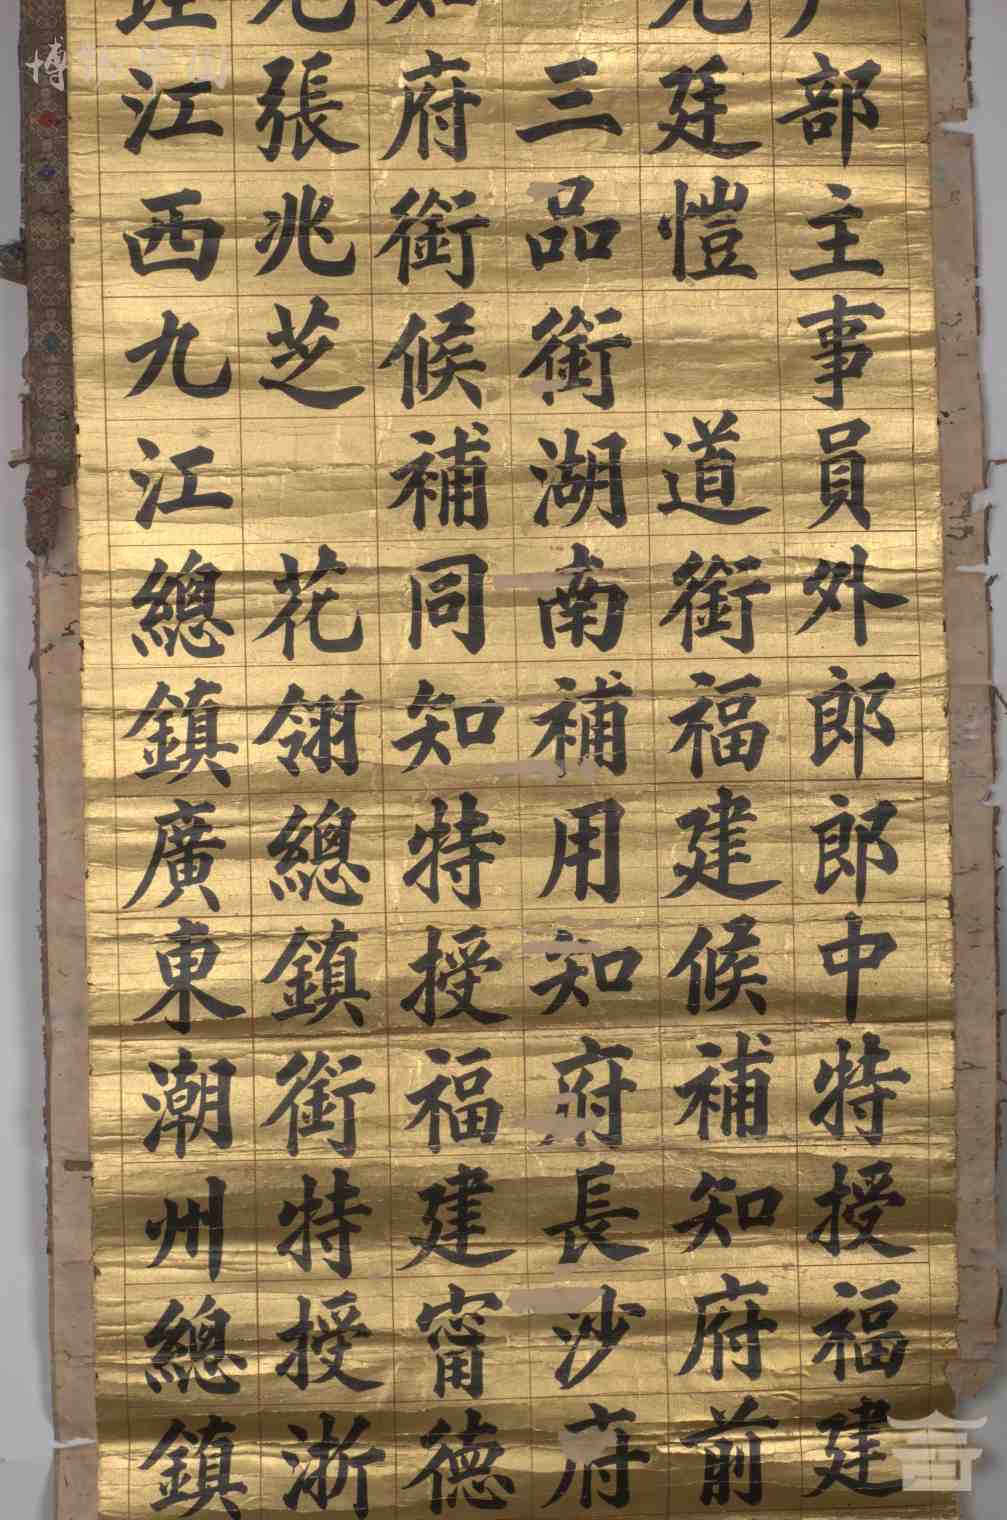 部主事員外郎郎中特授福建
廷愷　道銜福建候補知府前
三品銜湖南補用知府長沙府
府銜候補同知特授福建甯德
張兆芝　花翎總鎮銜特授浙
江西九江總鎮廣東潮州總鎮